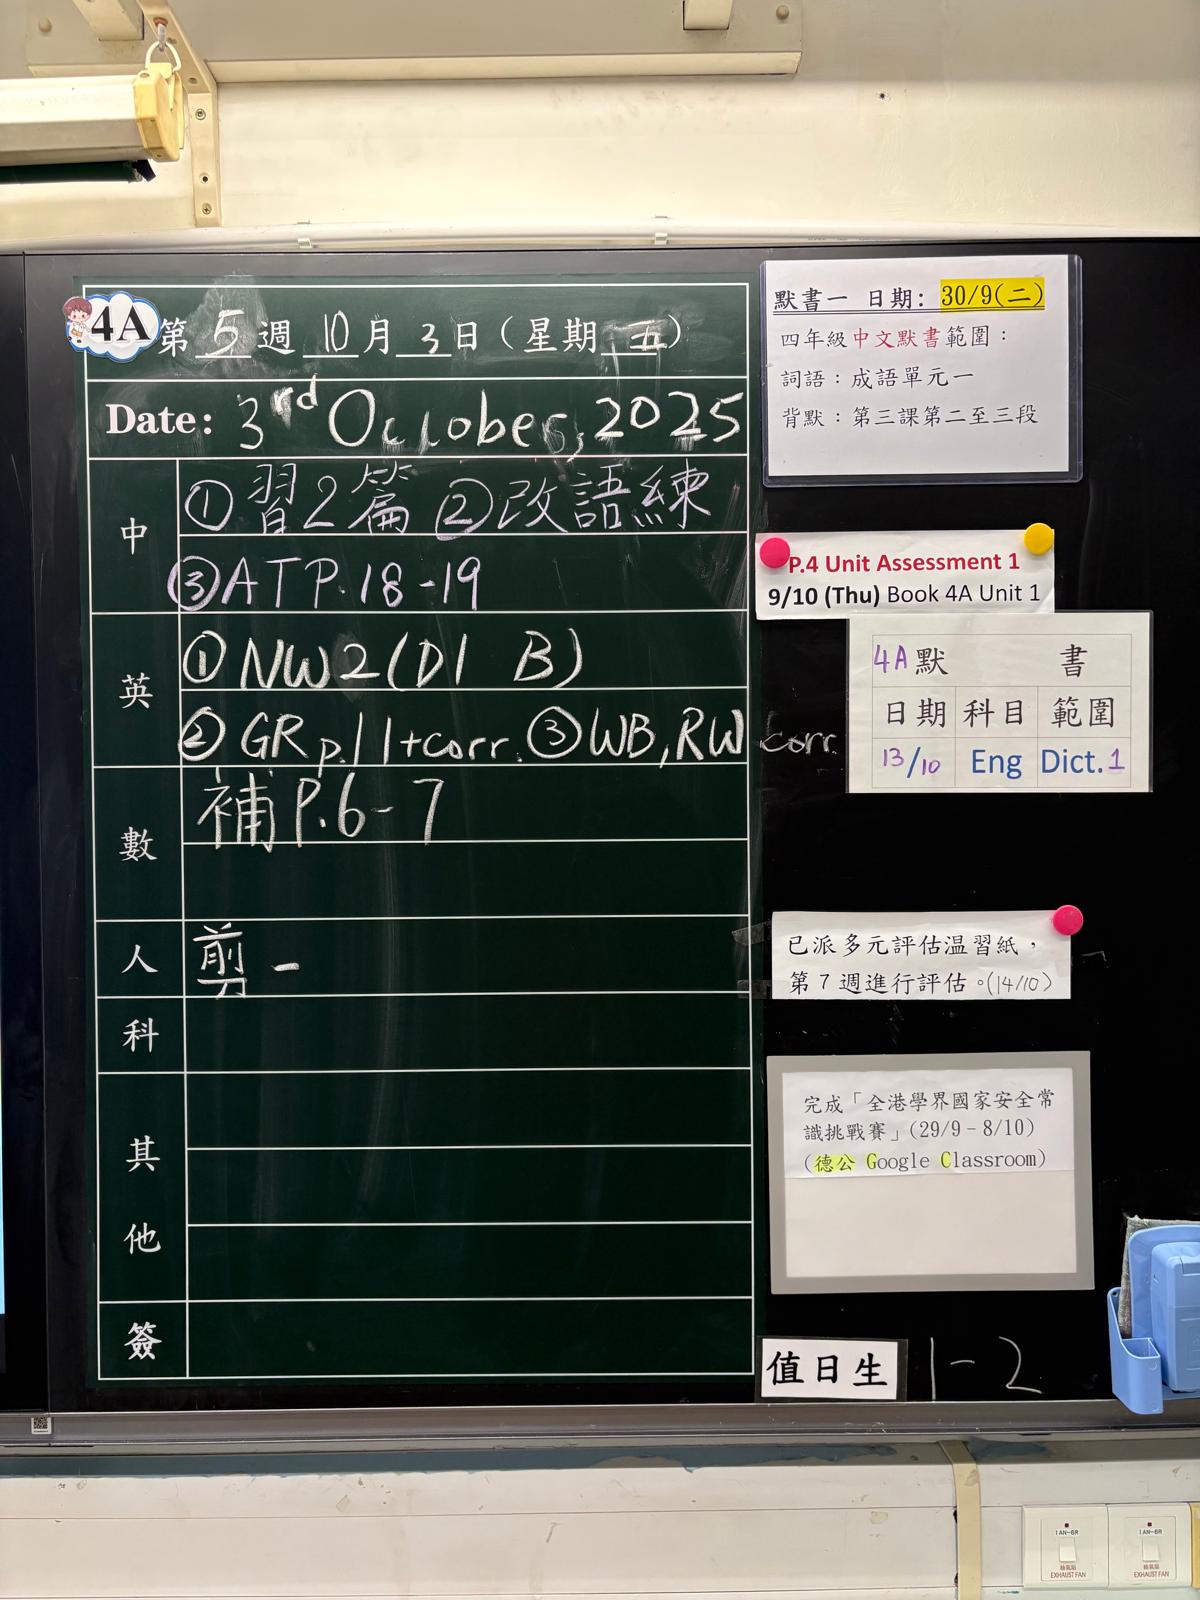 4A 第 5 週 10 月 3 日（星期 五）
Date: 3rd October, 2025
中
① 習2篇 ② 改語練
③ ATP.18-19
英
① NW2(D1 B)
② GR p.11+corr. ③ WB, RW corr.
數
補 P.6-7
人
剪一
科
其他
簽
默書一 日期: 30/9(二)
四年級中文默書範圍：
詞語：成語單元一
背默：第三課第二至三段
P.4 Unit Assessment 1
9/10 (Thu) Book 4A Unit 1
4A 默 書
日期 科目 範圍
13/10 Eng Dict.1
已派多元評估温習紙，
第 7 週進行評估。(14/10)
完成「全港學界國家安全常
識挑戰賽」(29/9－8/10)
(德公 Google Classroom)
值日生 1-2
1AN-6R
抽氣扇
EXHAUST FAN
1AN-6R
抽氣扇
EXHAUST FAN